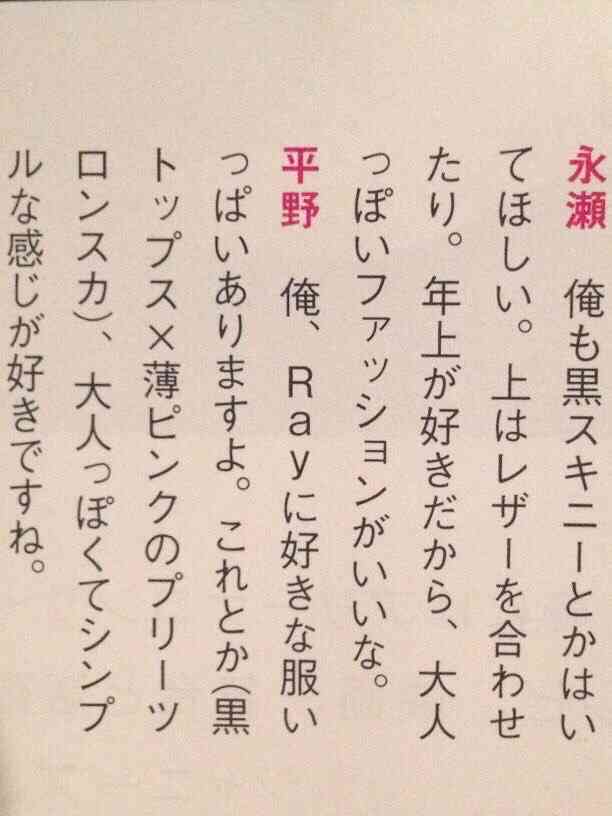 永瀬　俺も黒スキニーとかはい
てほしい。上はレザーを合わせ
たり。年上が好きだから、大人
っぽいファッションがいいな。
平野　俺、Rayに好きな服い
っぱいありますよ。これとか(黒
トップス×薄ピンクのプリーツ
ロンスカ)、大人っぽくてシンプ
ルな感じが好きですね。